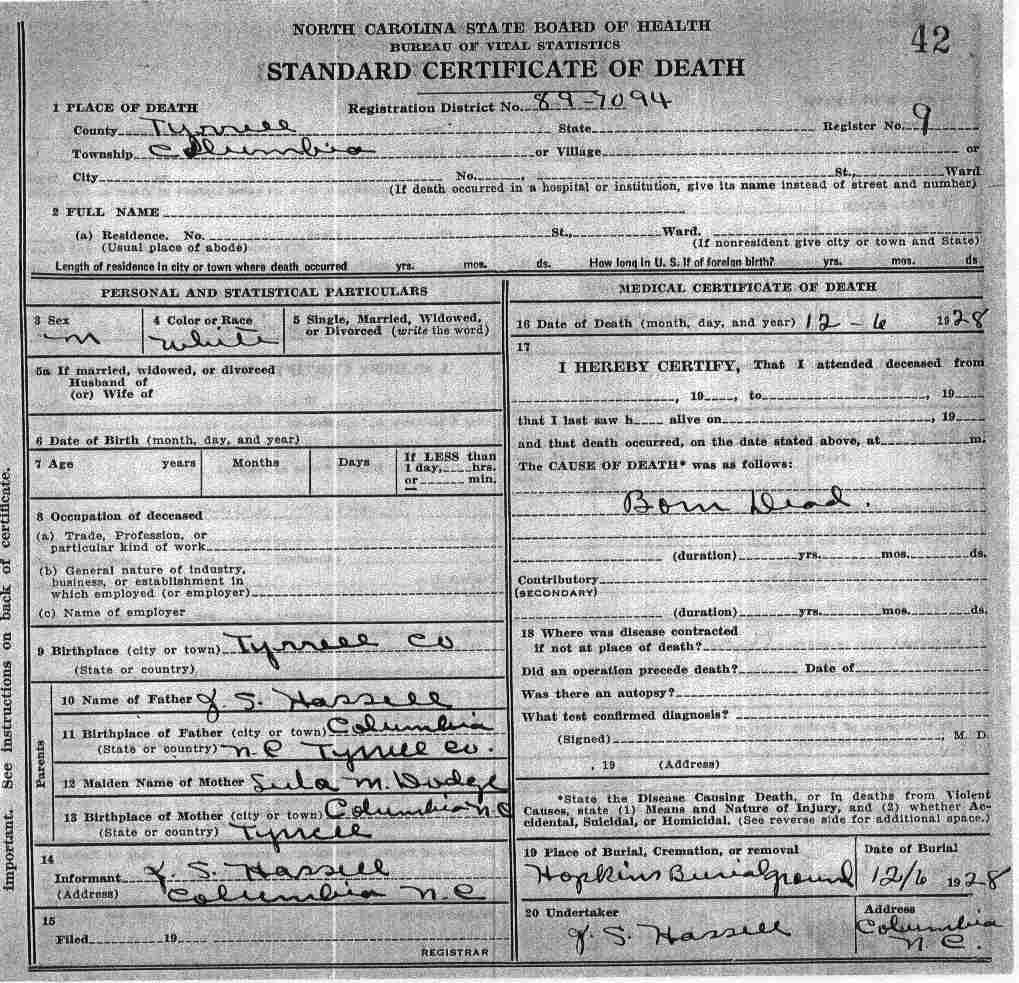 NORTH CAROLINA STATE BOARD OF HEALTH
BUREAU OF VITAL STATISTICS
42
STANDARD CERTIFICATE OF DEATH
1 PLACE OF DEATH Registration District No. 89-7094
County Tyrrell State Register No. 9
Township Columbia or Village or
City No. , St., Ward
(If death occurred in a hospital or institution, give its name instead of street and number)
2 FULL NAME
(a) Residence. No. St., Ward.
(Usual place of abode) (If nonresident give city or town and State)
Length of residence in city or town where death occurred yrs. mos. ds. How long in U. S. if of foreign birth? yrs. mos. ds
PERSONAL AND STATISTICAL PARTICULARS
3 Sex 4 Color or Race 5 Single, Married, Widowed,
or Divorced (write the word)
M White
5a If married, widowed, or divorced
Husband of
(or) Wife of
6 Date of Birth (month, day, and year)
7 Age years Months Days If LESS than
1 day, hrs.
or min.
8 Occupation of deceased
(a) Trade, Profession, or
particular kind of work
(b) General nature of industry,
business, or establishment in
which employed (or employer)
(c) Name of employer
9 Birthplace (city or town) Tyrrell Co
(State or country)
Parents
10 Name of Father J. S. Hassell
11 Birthplace of Father (city or town) Columbia
(State or country) N C Tyrrell Co.
12 Maiden Name of Mother Lula M. Dodge
13 Birthplace of Mother (city or town) Columbia N.C
(State or country) Tyrrell
14
Informant J. S. Hassell
(Address) Columbia N. C
15
Filed 19
REGISTRAR
MEDICAL CERTIFICATE OF DEATH
16 Date of Death (month, day, and year) 12 - 6 1928
17
I HEREBY CERTIFY, That I attended deceased from
, 19 , to , 19
that I last saw h alive on , 19
and that death occurred, on the date stated above, at m.
The CAUSE OF DEATH* was as follows:
Born Dead.
(duration) yrs. mos. ds.
Contributory
(SECONDARY)
(duration) yrs. mos. ds.
18 Where was disease contracted
if not at place of death?
Did an operation precede death? Date of
Was there an autopsy?
What test confirmed diagnosis?
(Signed) , M. D.
, 19 (Address)
*State the Disease Causing Death, or in deaths from Violent
Causes, state (1) Means and Nature of Injury, and (2) whether Ac-
cidental, Suicidal, or Homicidal. (See reverse side for additional space.)
19 Place of Burial, Cremation, or removal Date of Burial
Hopkins Burial ground 12/6 1928
20 Undertaker Address
J. S. Hassell Columbia
N. C.
important. See instructions on back of certificate.